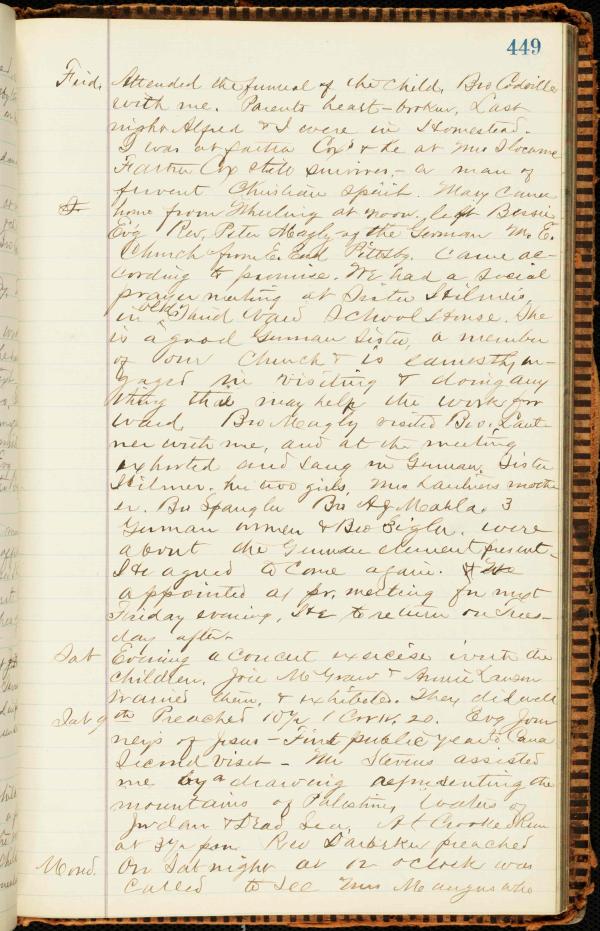 449
Frid. Attended the funeral of the child, Bro
with me. Parents heart-broken. Last
night Alfred & I were in Homestead.
I was at Cox's & he at Mrs Slocum
Cox still survives, - a man of
fervent Christian spirit. Mary came
home from Wheeling at noon, left Bessie.
Evg Rev. Peter Magly of the German M. E.
Church from E. End Pittsbg. came ac-
cording to promise. We had a social
prayer meeting at Sister Hilmer's,
in ward School House. She
is a good German Sister, a member
of our Church & is earnestly en-
gaged in visiting & doing any
thing that may help the work for
ward. Bro Magly visited Bro. Laut-
ner with me, and at the meeting
exhorted and sang in German. Sister
Hilmer, her two girls, Mrs mothe
er. Bro Spangler Bro 3
German women & Bro Eigler. were
about the German element present.
He agreed to come again. We
appointed a pr. meeting for next
Friday evening, He to return on Tues-
day after
Sat Evening a concert exercise with the
children. Joie McGraw & Annie Lawson
trained them, & exhibited. They did well
9th Preached 10½ 1 Cor. 20. Evg Jour
neys of Jesus - First public year to Cana
Second visit - Mr Stevens assisted
me by a drawing representing the
mountains of Palestine, waters of
Jordan & Dead Sea, At Crooked Run
at 3½ pm Rev preached
Mond. On Sat night at 12 o'clock was
called to see Mrs who